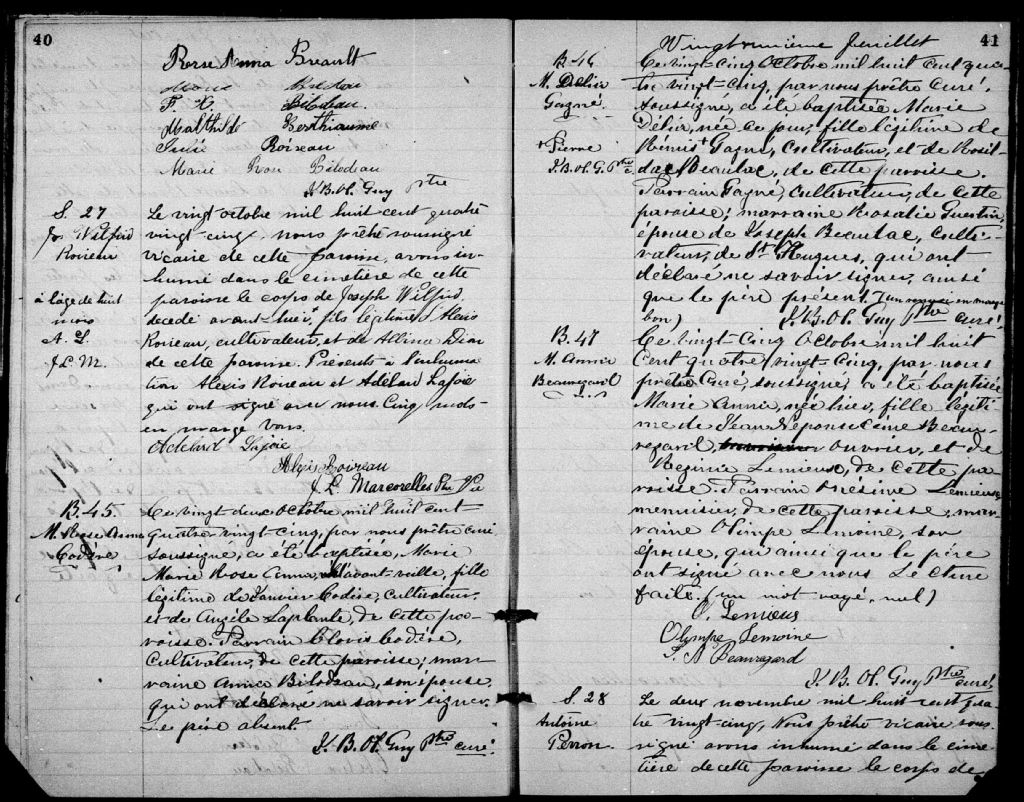 40
Rose Anna Breault
F. X. Bilodeau
Malthilde Berthiaume
Julie Roireau
Marie Rose Bilodeau
J. B. Ol. Guy Ptre
S. 27
Js. Wilfrid
Roireau
à l'âge de huit
mois
A. L.
J. L. M.
Le vingt octobre mil huit cent quatre
vingt-cinq, nous prêtre soussigné
vicaire de cette paroisse, avons in-
humé dans le cimetière de cette
paroisse le corps de Joseph Wilfrid,
décédé avant-hier, fils légitime d'Alexis
Roireau, cultivateur, et de Allina Dion
de cette paroisse. Présents à l'inhuma-
tion Alexis Roireau et Adélard Lajoie
qui ont signé avec nous. Cinq mots
en marge bons.
Adelard Lajoie
Alexis Roireau
J. L. Marcorelles Ptre Vic
B. 45
M. Rose Anna
Codère
Ce vingt deux Octobre mil huit cent
quatre vingt-cinq, par nous prêtre curé
soussigné, a été baptisée, Marie
Marie Rose Anna, l'avant-veille, fille
légitime de Janvier Codère, cultivateur
et de Angèle Laplante, de cette pa-
roisse. Parrain Clovis Codère,
Cultivateur, de cette paroisse; mar-
raine Annie Bilodeau, son épouse,
qui ont déclaré ne savoir signer.
Le père absent.
J. B. Ol. Guy Ptre curé.
41
Vingt unième feuillet
B. 46
M. Délia
Gagné.
+ Pierre
J. B. Ol. G. Ptre
Ce vingt-cinq Octobre mil huit cent qua-
tre vingt-cinq, par nous prêtre curé,
soussigné, a été baptisée Marie
Délia, née ce jour, fille légitime de
Rémis + Gagné, Cultivateur, et de Rosil-
da Beaulac, de cette paroisse.
Parrain Gagné, cultivateur, de cette
paroisse; marraine Rosalie Guertin,
épouse de Joseph Beaulac, culti-
vateur, de St. Hugues, qui ont
déclaré ne savoir signer, ainsi
que le père présent. (un renvoi en marge
bon) J. B. Ol. Guy Ptre curé.
B. 47
M. Annie
Beauregard
Ce vingt-cinq Octobre mil huit
Cent quatre vingt-cinq, par nous
prêtre Curé, soussigné, a été baptisée
Marie Annie, née hier, fille légiti-
me de Jean Néponucène Beau-
regard, ouvrier, et de
Régina Lemieux, de cette pa-
roisse. Parrain Onésime Lemieux,
menuisier, de cette paroisse, mar-
raine Olimpe Lemoine, son
épouse, qui ainsi que le père
ont signé avec nous Lecture
faite. (un mot rayé, nul)
O. Lemieux
Olympe Lemoine
J. N Beauregard
J. B. Ol. Guy Ptre curé.
S. 28
Antoine
Perron.
Le deux novembre mil huit cent qua-
tre vingt-cinq, Nous prêtre vicaire sous-
signé avons inhumé dans le cime-
tière de cette paroisse le corps de